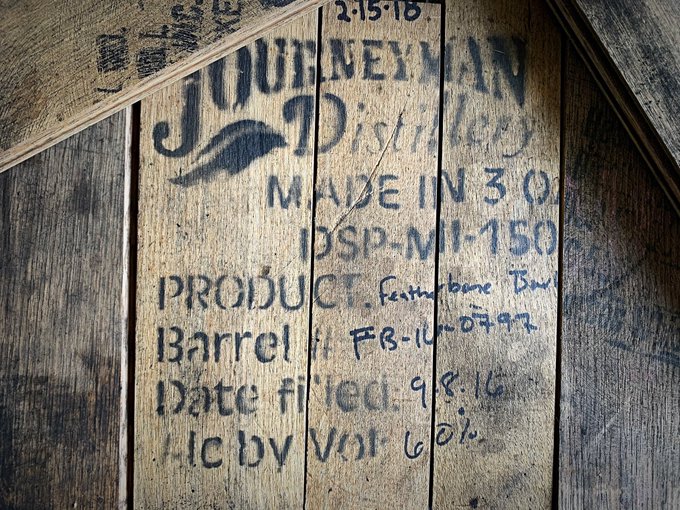 2-15-18.
JOURNEYMAN
Distillery
MADE IN 3 O
DSP-MI-150
PRODUCT. Featherbone
Barrel # FB-16-0797
Date filled: 9.8.16
Alc by Vol: 60%